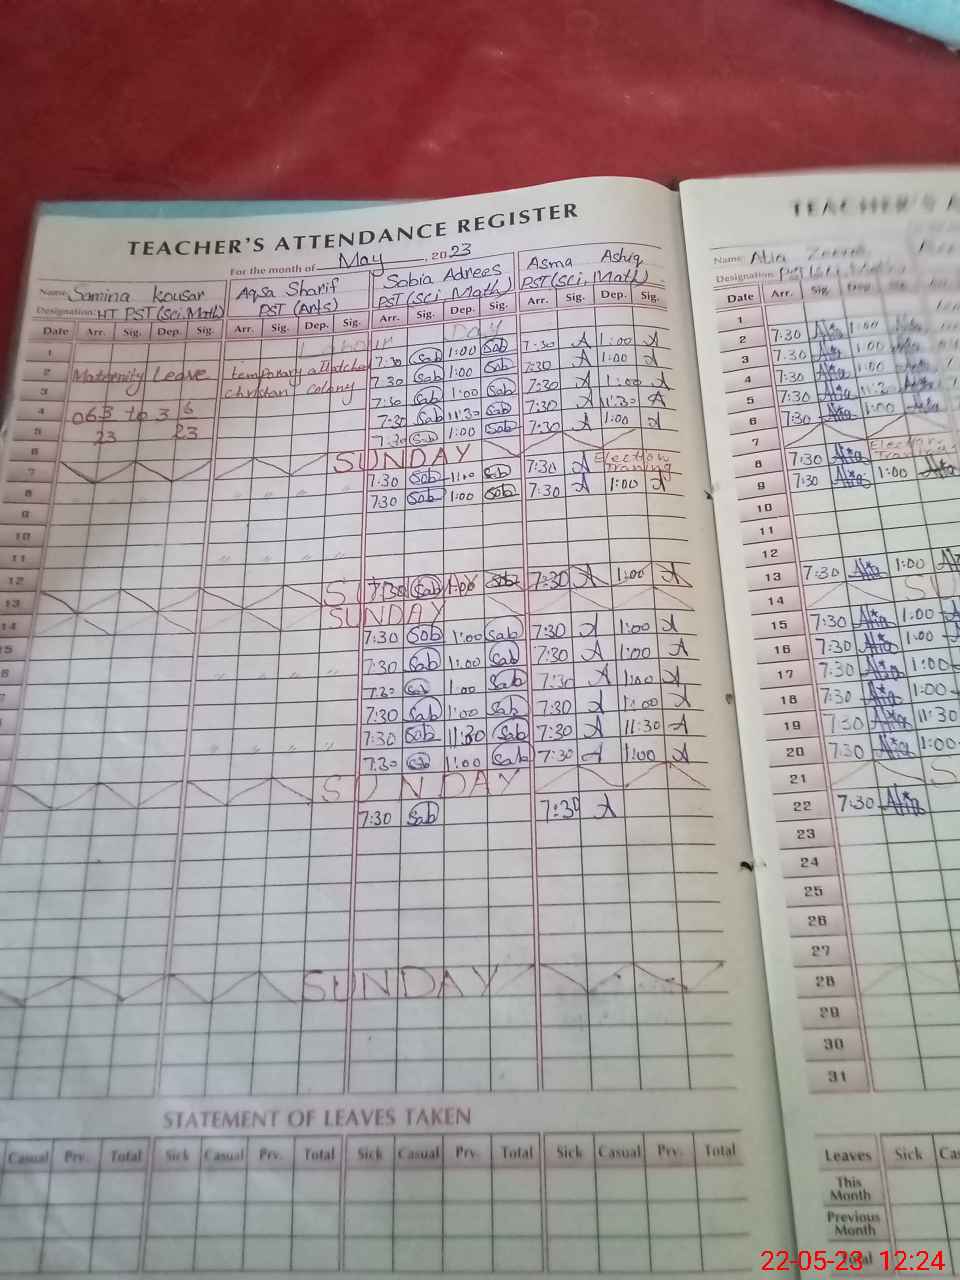 TEACHER'S ATTENDANCE REGISTER
For the month of May, 2023
Name Samina Kousar Aqsa Sharif Sobia Adrees Asma Ashiq
Designation: HT PST(Sci, Math) PST (Arts) PST(Sci, Math) PST(Sci, Math)
Date Arr. Sig. Dep. Sig. Arr. Sig. Dep. Sig. Arr. Sig. Dep. Sig. Arr. Sig. Dep. Sig.
1 Labour Day
2 Maternity Leave temporary attached 7:30 Sab 1:00 Sab 7:30 A 1:00 A
3 christan colony 7:30 Sab 1:00 Sab 7:30 A 1:00 A
4 7:30 Sab 1:00 Sab 7:30 A 1:00 A
5 7:30 Sab 11:30 Sab 7:30 A 11:30 A
6 7:30 Sab 1:00 Sab 7:30 A 1:00 A
7 SUNDAY
8 7:30 Sab Sab 7:30 A Election Traning
9 7:30 Sab 1:00 Sab 7:30 A 1:00 A
10
11
12
13 7:30 Sab 1:00 Sab 7:30 A 1:00 A
14 SUNDAY
15 7:30 Sab 1:00 Sab 7:30 A 1:00 A
7:30 Sab 1:00 Sab 7:30 A 1:00 A
7:30 Sab 1:00 Sab 7:30 A 1:00 A
7:30 Sab 1:00 Sab 7:30 A 1:00 A
7:30 Sab 11:30 Sab 7:30 A 11:30 A
7:30 Sab 1:00 Sab 7:30 A 1:00 A
SUNDAY
7:30 Sab 7:30 A
SUNDAY
STATEMENT OF LEAVES TAKEN
Casual Prv. Total Sick Casual Prv. Total Sick Casual Prv. Total Sick Casual Prv. Total
TEACHER'S A
Name: Atia
Designation:
Date Arr. Sig. Dep.
1
2 7:30 Atia 1:00
3 7:30 Atia 1:00
4 7:30 Atia 1:00
5 7:30 Atia 11:30
6 7:30 Atia 1:00
7
8 7:30 Atia Election Traning
9 7:30 Atia 1:00
10
11
12
13 7:30 Atia 1:00
14 SU
15 7:30 Atia 1:00
16 7:30 Atia 1:00
17 7:30 Atia 1:00
18 7:30 Atia 1:00
19 7:30 Atia 11:30
20 7:30 Atia 1:00
21 S
22 7:30 Atia
23
24
25
26
27
28
29
30
31
Leaves Sick Cas
This Month
Previous Month
Total
22-05-23 12:24